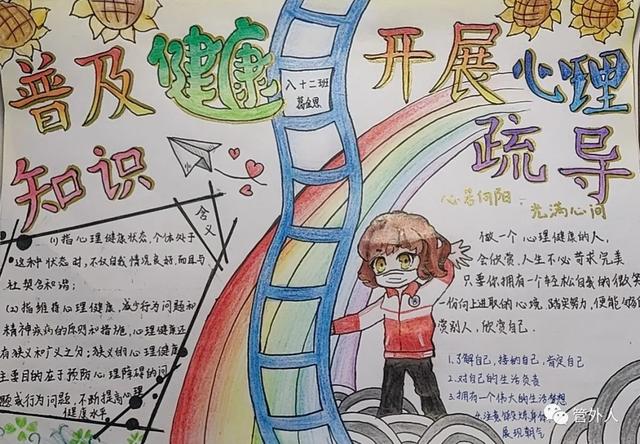 普及健康
知识
开展心理
疏导
八十二班
含义
(1)指心理健康状态,个体处于
这种状态时,不仅自我情况良好,而且与
社契合和谐;
(2)指维持心理健康、减少行为问题和
精神疾病的原则和措施。心理健康还
有狭义和广义之分:狭义的心理健康
主要目的在于预防心理障碍的问
题或行为问题,不断提高心理
健康水平
心若向阳,
充满心间
做一个心理健康的人,
会欣赏,人生不必苛求完美
只要你拥有一个轻松自我的微笑
一份向上进取的心境,踏实努力,便能够
赏别人,欣赏自己.
1.了解自己,接纳自己,肯定自己
2.对自己的生活负责
3.拥有一个伟大的生活梦想
4.注意锻炼身体
展现朝气
管外人